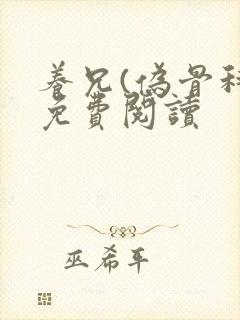 養兄(偽骨科
免費閱讀
巫希平